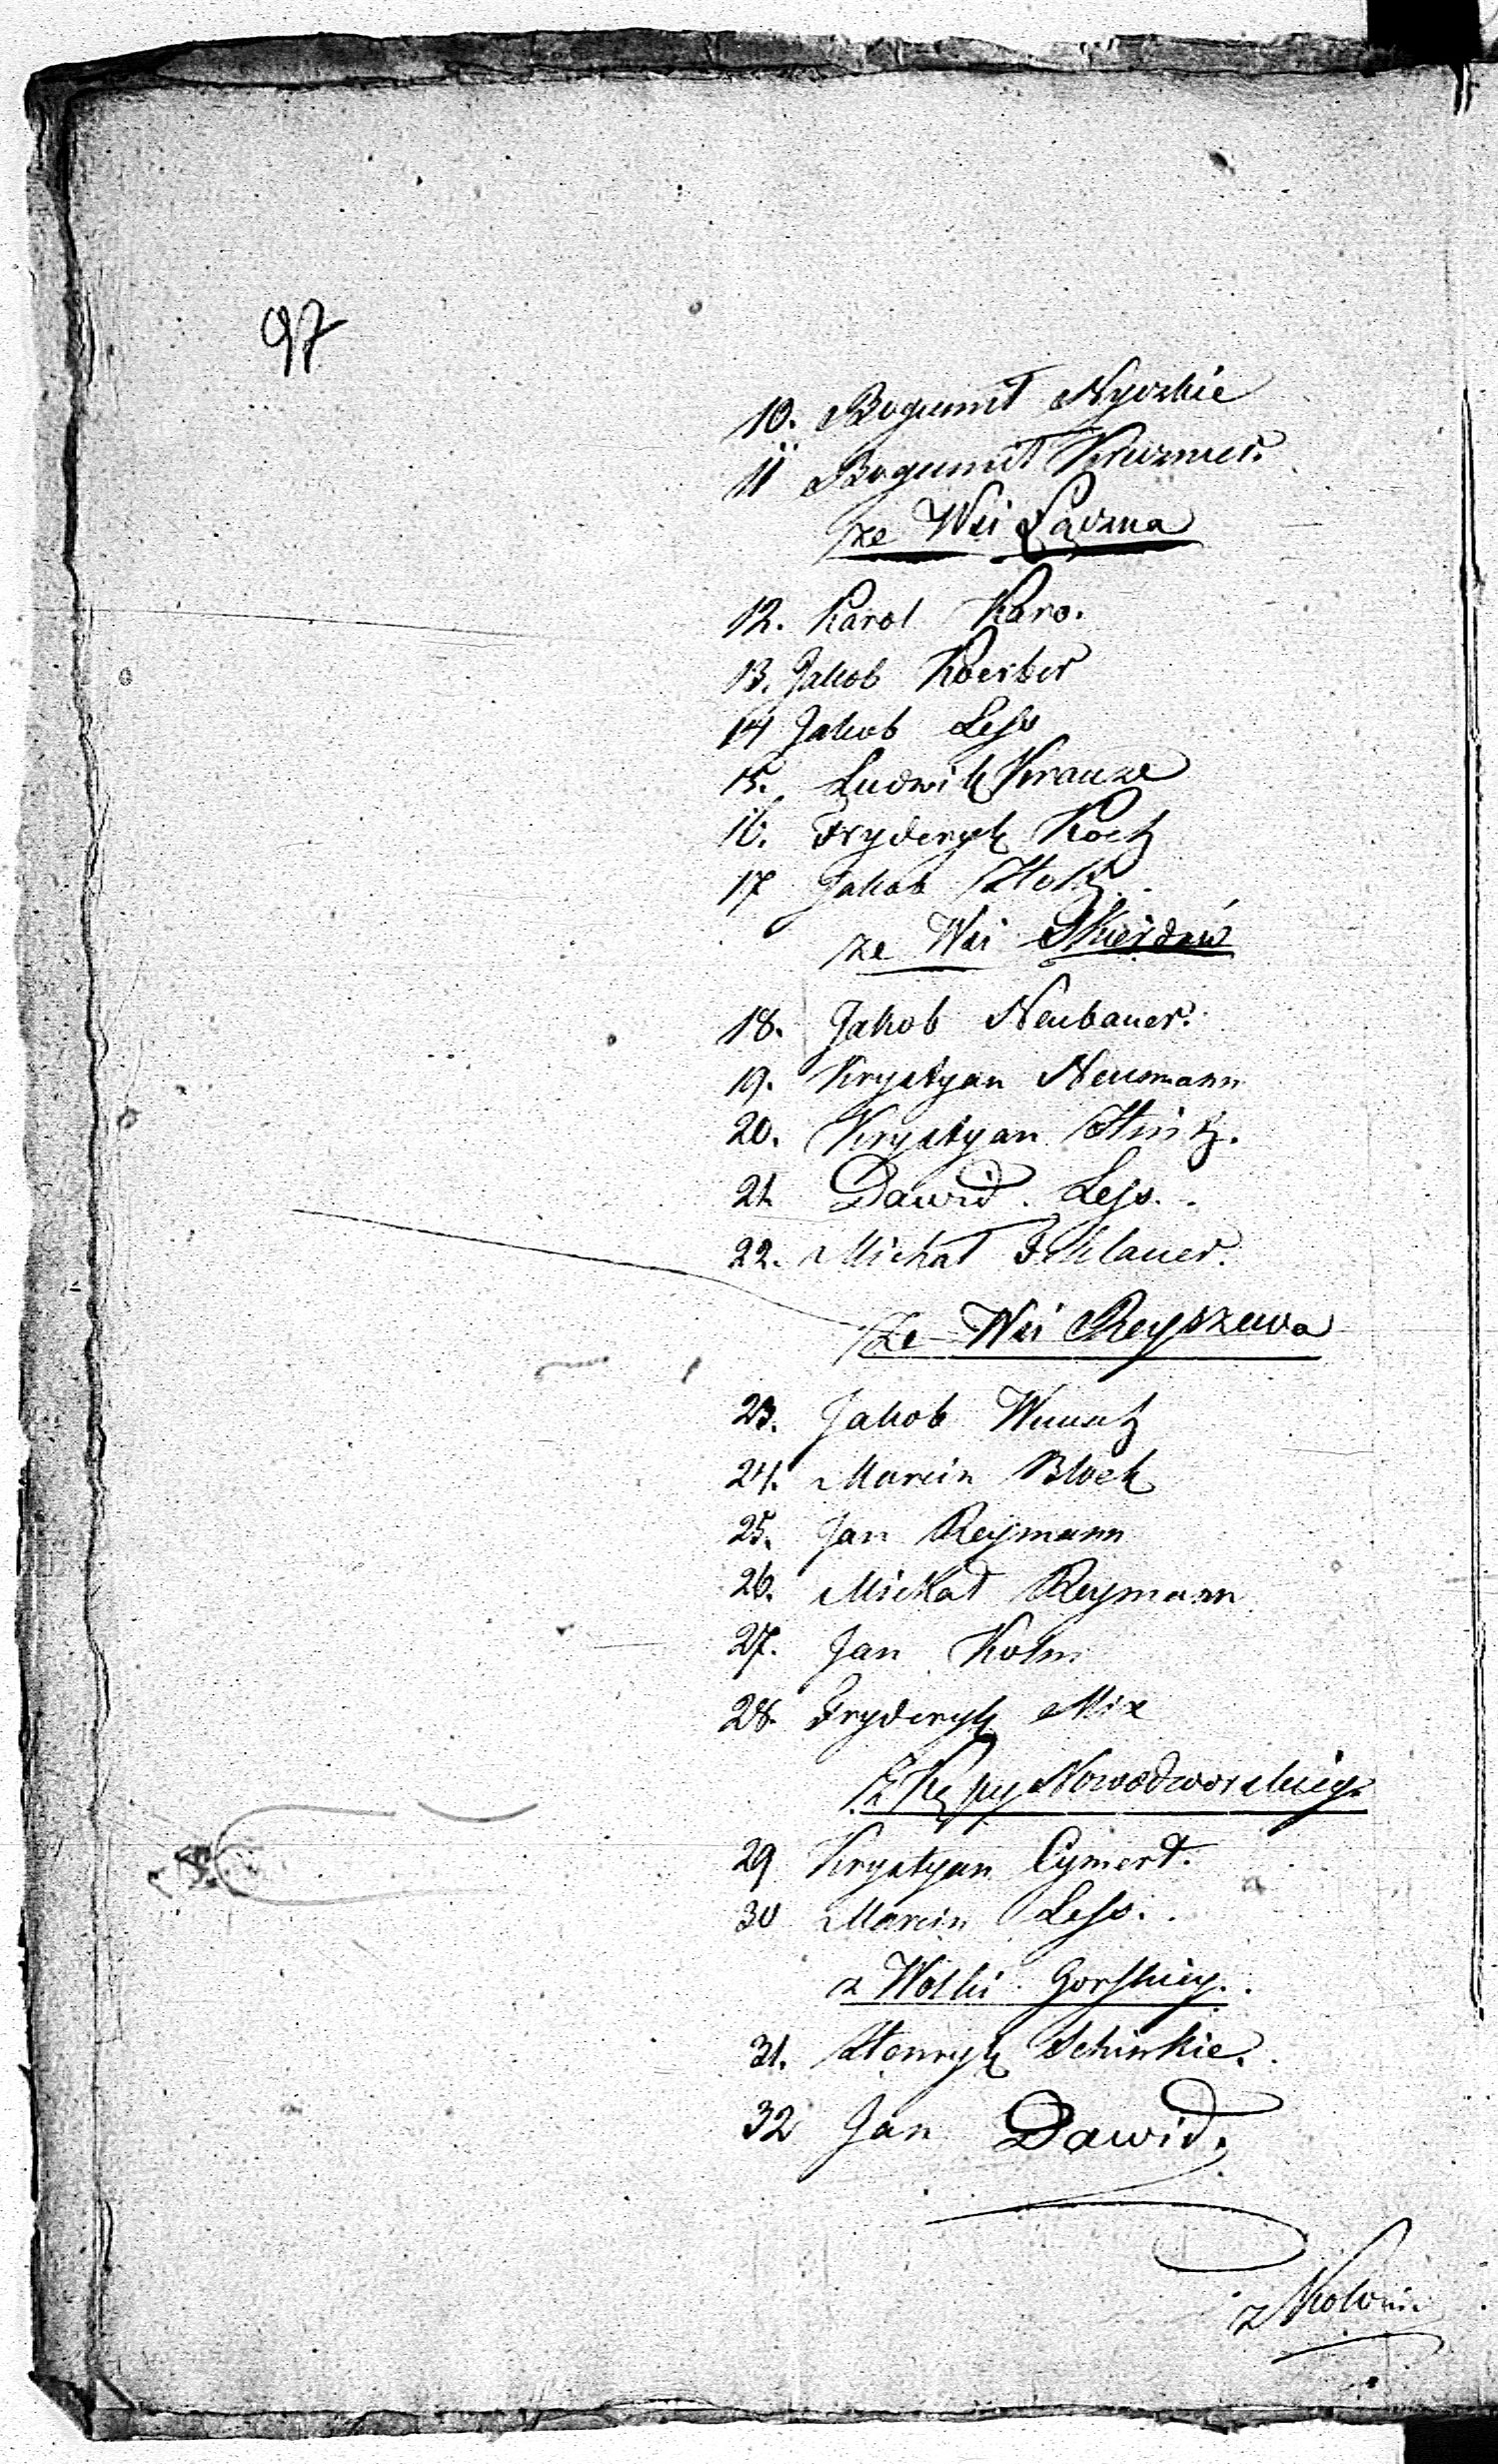 97
10. Bogumił Nyczkie
11 Bogumił
ze Wsi Łączna
12. Karol Karo.
13. Jakob Koerber
14 Jakob Less
15. Ludwik Krauze
16. Fryderyk Kock
17 Jakob
ze Wsi Skierdów
18. Jakob Neubauer.
19. Krystyan Neumann
20. Krystyan Hintz.
21. Dawid. Less.
22. Michał Feklauer.
Ze Wsi Reyszewa
23. Jakob
24. Marcin Block
25. Jan Reymann
26. Michał Reymann
27. Jan Kolm
28. Fryderyk Mix
Z Kępy Nowodworskiey
29 Krystyan Cymert.
30 Marcin Less.
z Wolki Gorskiey.
31. Henryk Schinkie.
32 Jan Dawid.
z Kolonii